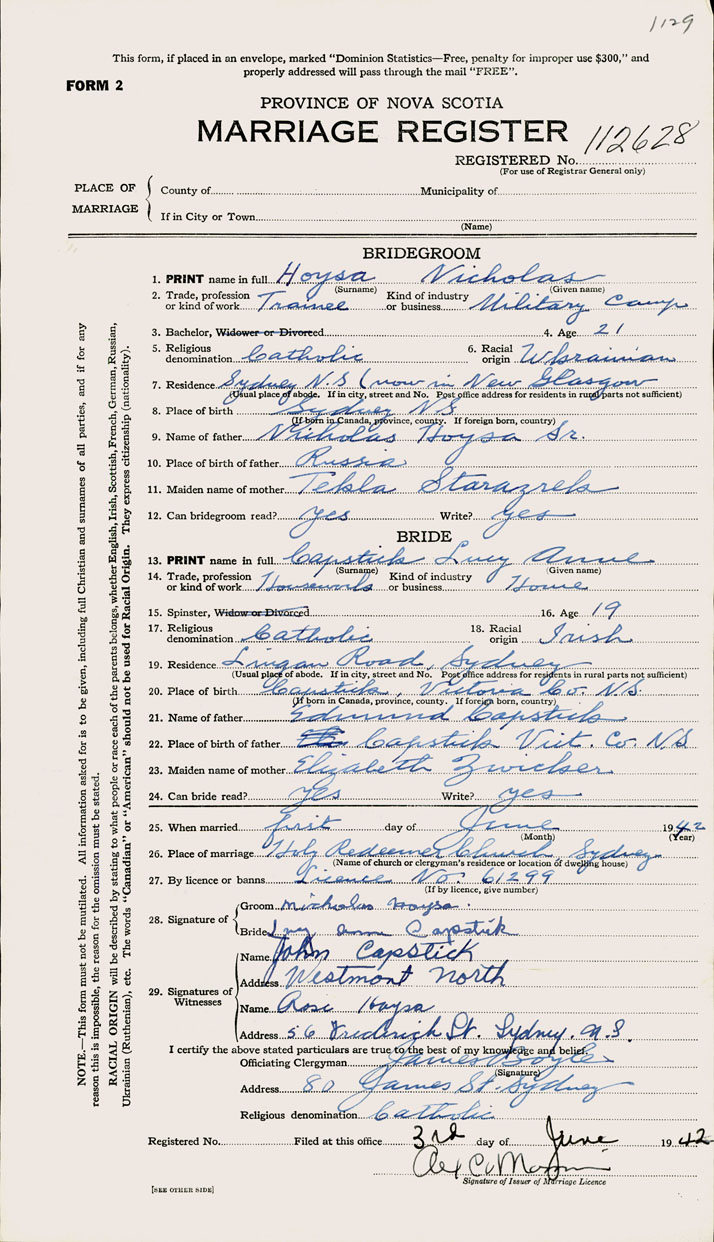 1129
This form, if placed in an envelope, marked "Dominion Statistics—Free, penalty for improper use $300," and
properly addressed will pass through the mail "FREE".
FORM 2
PROVINCE OF NOVA SCOTIA
MARRIAGE REGISTER
REGISTERED No. 112628
(For use of Registrar General only)
PLACE OF MARRIAGE
County of Municipality of
If in City or Town
(Name)
BRIDEGROOM
1. PRINT name in full Hoysa Nicholas
(Surname) (Given name)
2. Trade, profession or kind of work Trainee Kind of industry or business Military Camp
3. Bachelor, Widower or Divorced 4. Age 21
5. Religious denomination Catholic 6. Racial origin Ukrainian
7. Residence Sydney N.S (now in New Glasgow
(Usual place of abode. If in city, street and No. Post office address for residents in rural parts not sufficient)
8. Place of birth Sydney N.S.
(If born in Canada, province, county. If foreign born, country)
9. Name of father Nicholas Hoysa Sr.
10. Place of birth of father Russia
11. Maiden name of mother Tekla Starazrek
12. Can bridegroom read? yes Write? yes
BRIDE
13. PRINT name in full Capstick Lucy Anne
(Surname) (Given name)
14. Trade, profession or kind of work Housework Kind of industry or business Home
15. Spinster, Widow or Divorced 16. Age 19
17. Religious denomination Catholic 18. Racial origin Irish
19. Residence Lingan Road, Sydney
(Usual place of abode. If in city, street and No. Post office address for residents in rural parts not sufficient)
20. Place of birth Capstick, Victoria Co. N.S.
(If born in Canada, province, county. If foreign born, country)
21. Name of father Edmund Capstick
22. Place of birth of father Capstick Vict. Co. N.S
23. Maiden name of mother Elizabeth Zwicker
24. Can bride read? yes Write? yes
25. When married first day of June 1942
(Month) (Year)
26. Place of marriage Holy Redeemer Church, Sydney
(Name of church or clergyman's residence or location of dwelling house)
27. By licence or banns Licence No. 61299
(If by licence, give number)
28. Signature of
Groom Nicholas Hoysa.
Bride Lucy Ann Capstick
29. Signatures of Witnesses
Name John Capstick
Address Westmont North
Name Rose Hoysa
Address 56 Frederick St. Sydney. N.S.
I certify the above stated particulars are true to the best of my knowledge and belief.
Officiating Clergyman James Doyle
(Signature)
Address 80 James St. Sydney
Religious denomination Catholic
Registered No. Filed at this office 3rd day of June 1942
Signature of Issuer of Marriage Licence
[SEE OTHER SIDE]
NOTE.—This form must not be mutilated. All information asked for is to be given, including full Christian and surnames of all parties, and if for any
reason this is impossible, the reason for the omission must be stated.
RACIAL ORIGIN will be described by stating to what people or race each of the parents belongs, whether English, Irish, Scottish, French, German, Russian,
Ukrainian (Ruthenian), etc. The words "Canadian" or "American" should not be used for Racial Origin. They express citizenship (nationality).